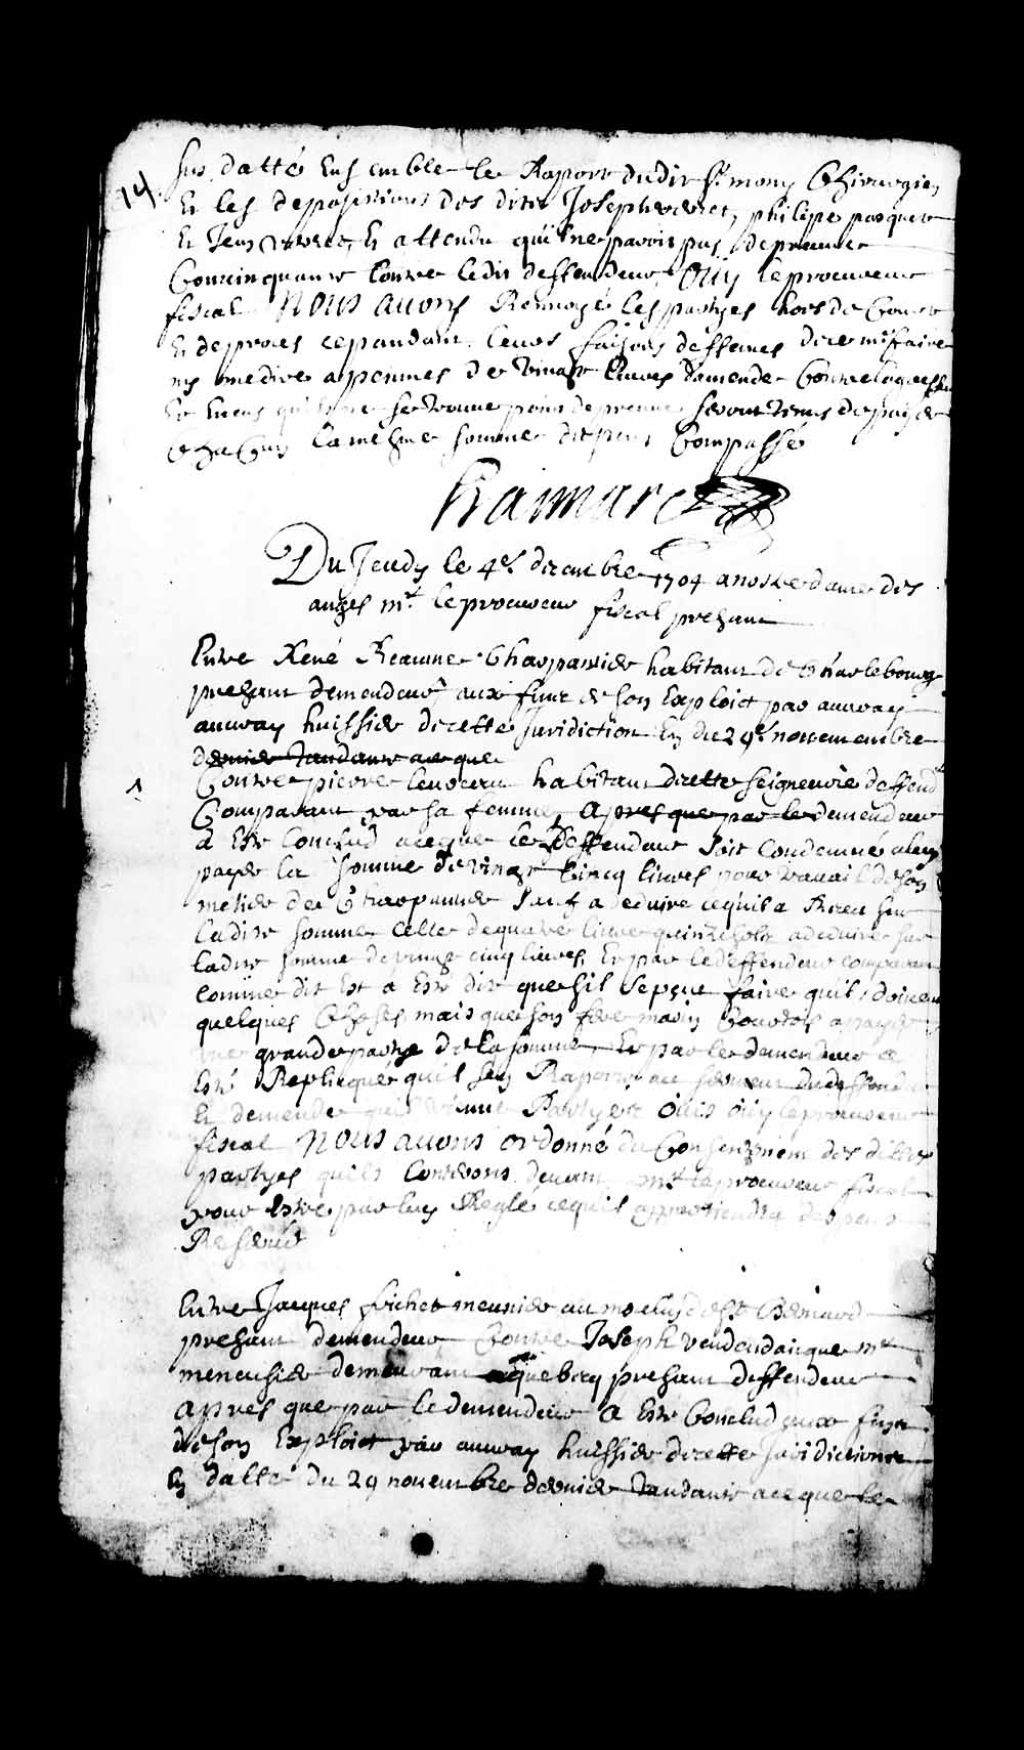 14.
sus datté Ensemble le Raport dudit Sr mony Chirurgien
Et les depositions des dits Joseph verret, philipe pasquier
Et Jean verret, Et attendu quil ne paroit pas de preuve
Convincquante Contre ledit deffendeur Ouy le procureur
fiscal Nous avons Renvoyé les partyes hors de Cour
Et de proces cependant leurs faisons deffences dice meffaire
ny medire a peinnes de vingt livres damende Contre
Et En cas quil ne se trouve point de preuve seront tenus de payer
Chacun la mesme somme depens Compassé
haimard
Du Jeudy le 4e. decembre 1704 a nostre dame des
anges mr. le procureur fiscal present
Entre René Reaume Charpantier habitant de Charlebourg
present demendeur aux fins de son Exploict par
auvray huissier de cette Juridiction En du 29e. novemembre
dernier Tandante ace que
Contre pierre habitant de cette seigneurie deffend
Comparant par sa femme, Apres que par le demendeur
a Esté Conclud aceque le deffendant soit Condemné a luy
payer la somme de vingt Cincq livres pour travail de son
metier de Charpantier sauf a deduire cequil a Receu sur
Ladite somme Celle de quatre livre quinze sols a deduire sur
ladite somme de vingt cinq livres, Et par le deffendeur comparant
comme dit Est a Esté dit que sil se peut faire quil doivent
quelques Choses mais que son fere a payé
une grande partye de la somme, Et par le demendeur a
Esté Replicqué quil sen Raporte au serment du deffendeur
Et demende Partyes ouis Ouy le procureur
fiscal Nous avons ordonné du Consentement des dittes
partyes quils Conteront devant mr. le procureur fiscal
pour Estre par luy Reglé cequil appartiendra depens
Reservé
Entre Jacques fichet meunier au moulin de St Bernard
present demendeur Contre Joseph vendandaique mr
menusier demeurant a quebecq present deffendeur
apres que par le demendeur a Esté Conclud aux fins
de son Exploict par auvray huissier de cette juridictionne
En datte du 29 novembre dernier Tandante ace que le